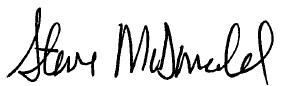 Steve McDonald